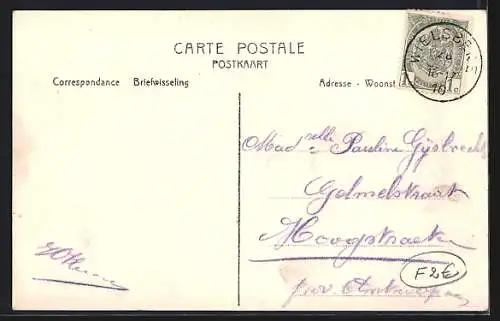 CARTE POSTALE
POSTKAART
Correspondance Briefwisseling
Adresse - Woonst
WIELSBEKE
28
16-17
10
1
Madelle Pauline Gijsbrechts
Gelmelstraat
Hoogstraeten
prov. Antwerpen
F2€